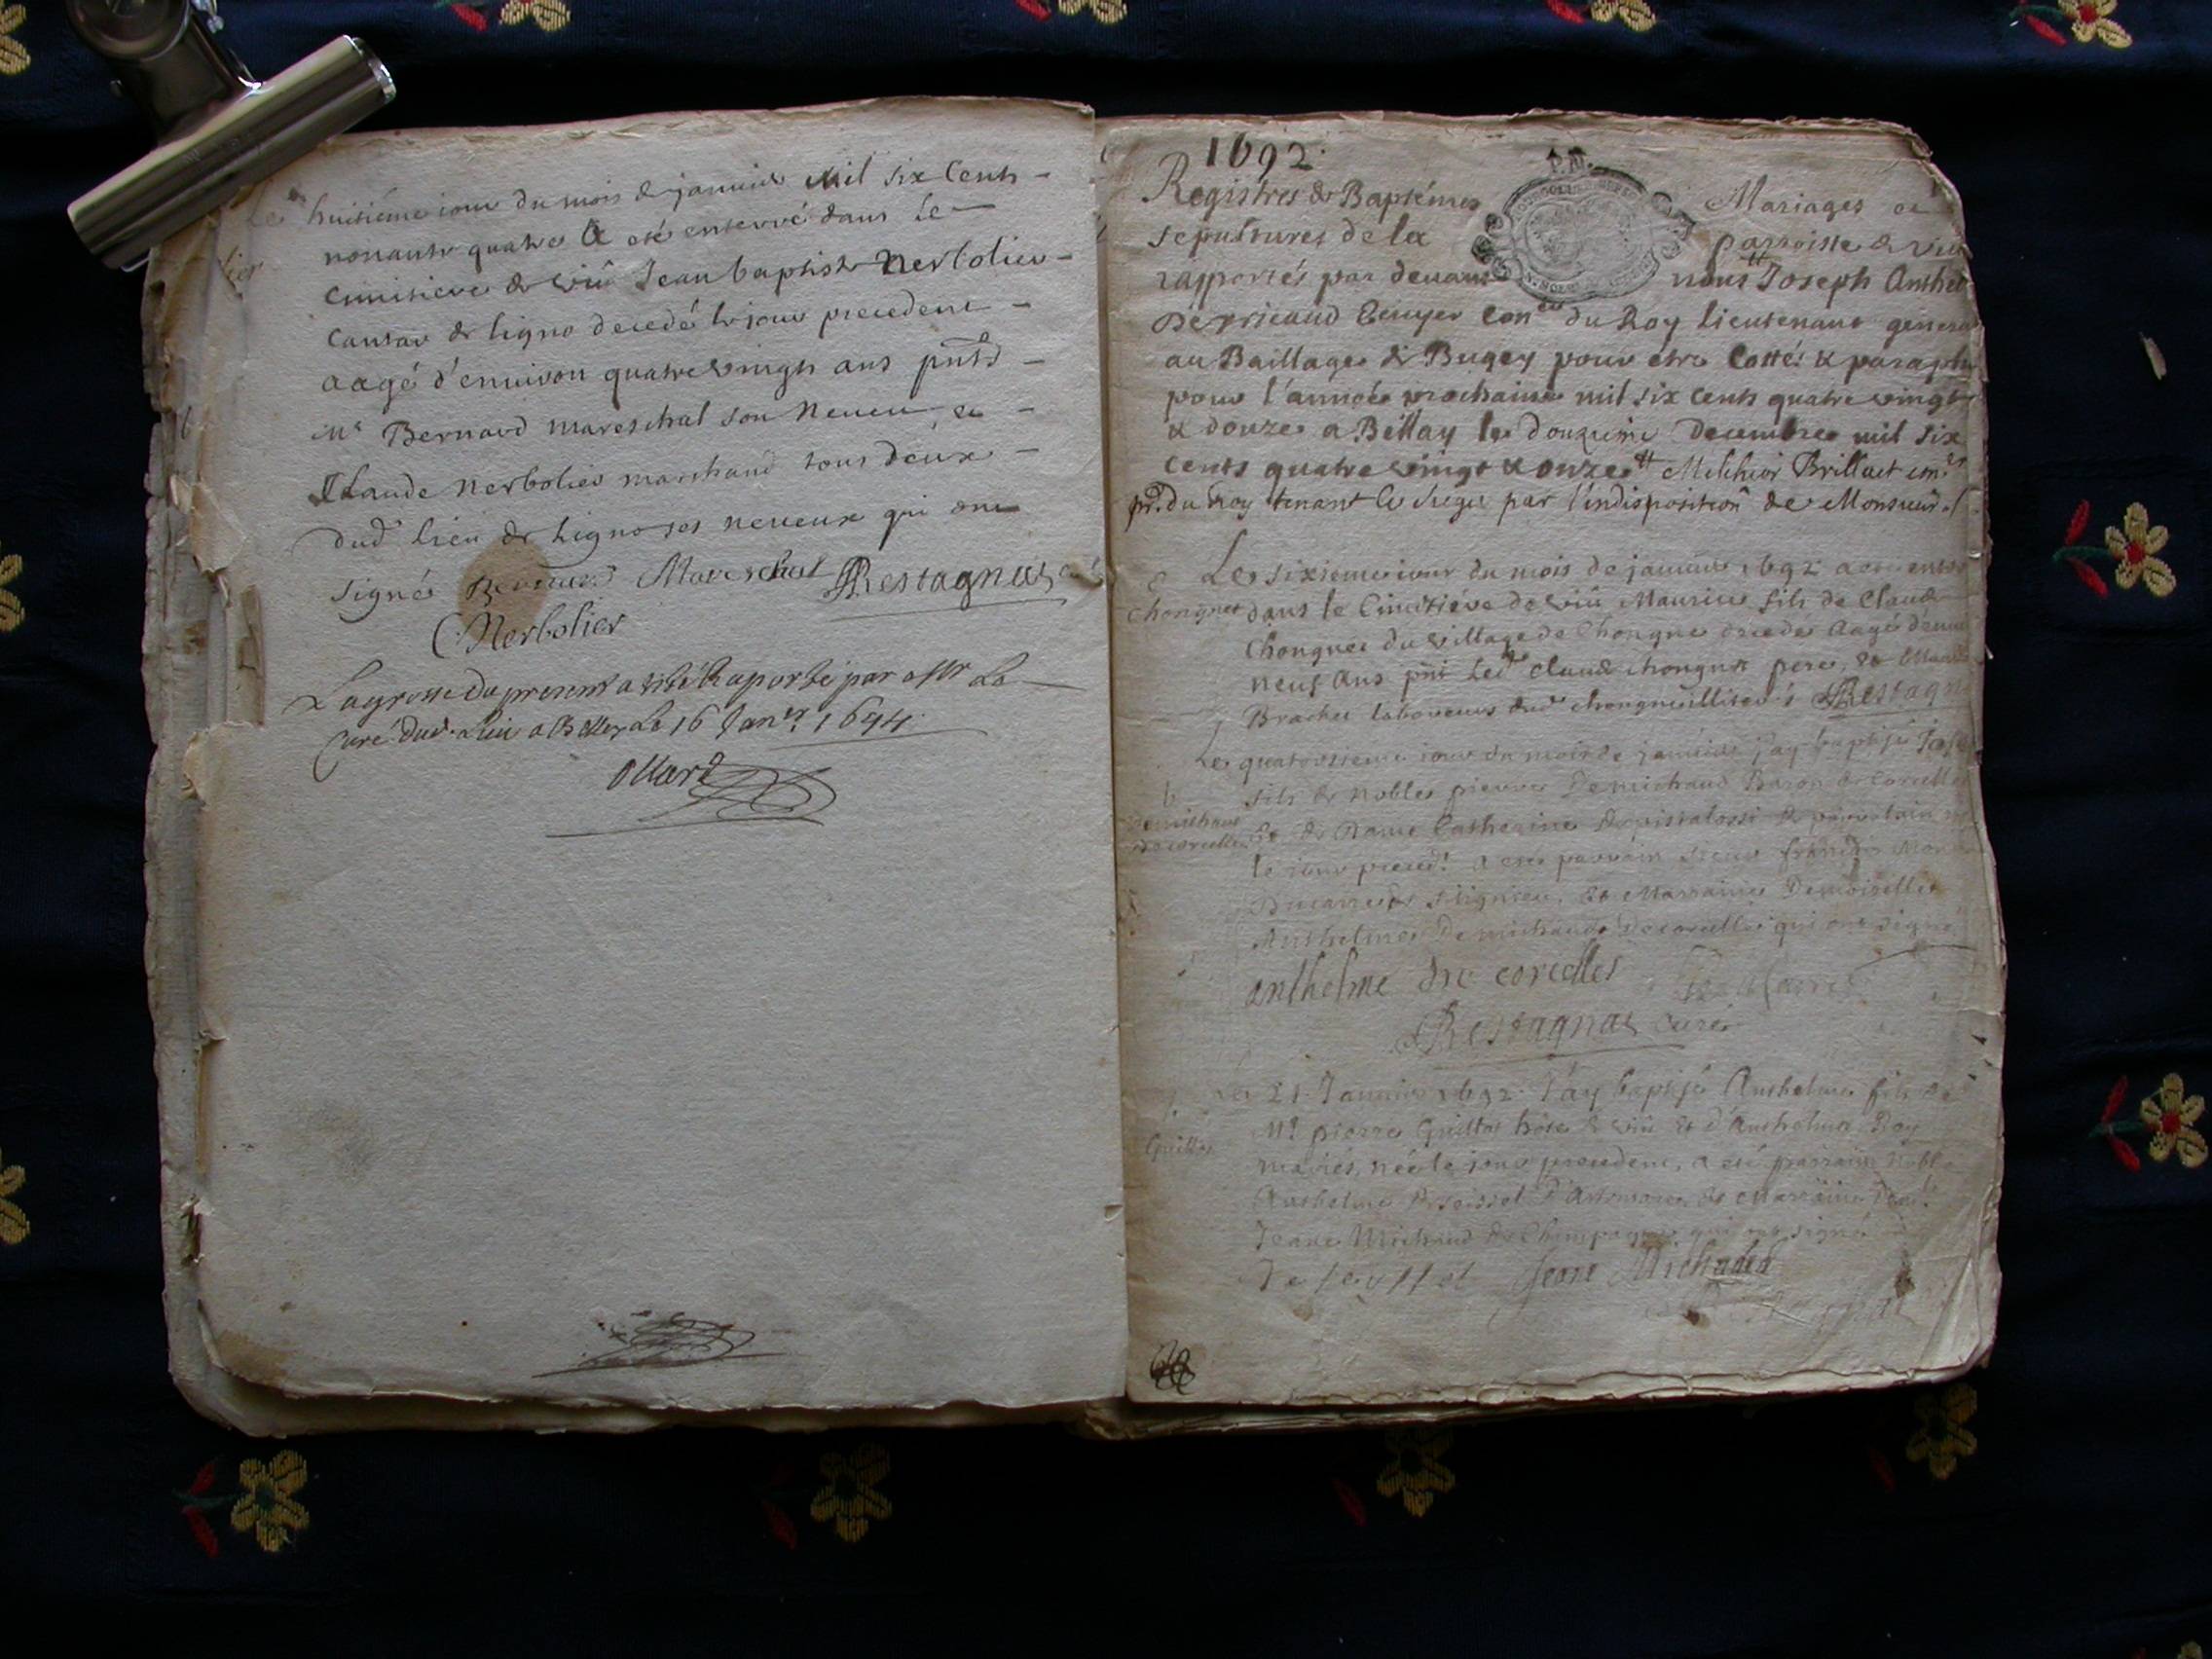 Le huitiéme iour du mois de janvier mil six Cents
nonante quatre A esté enterré dans Le
Cimitiere de Viû Jean baptiste Nerbolier
Cantar de ligno decedé le jour precedent
aagé d'environ quatre vingts ans pnts
Mr Bernard mareschal son Neveu et
Claude Nerbolier marchand tous deux
dud lieu de Ligno ses neveux qui ont
signé Bernard Mareschal Restagnat
CNerbolier
La grosse du present a esté Raporté par Mr Le
Curé dud. Lieu a Belley Le 16 Janer 1694
1692.
Registres de Baptémes Mariages et
sepultures de la parroisse de Viu
rapportés par devant nous Joseph Anthel
Derricaud Ecuyer Coner du Roy Lieutenant general
au Baillage de Bugey pour étre Cotté & paraphé
pour l'année prochaine mil six cents quatre vingt
& douze a Bellay le douzieme Decembre mil six
cents quatre vingt & onze Melchior Brillat
pr. du Roy tenant le siege par l'indisposition de Monsieur
Le sixieme iour du mois de janvier 1692 a esté enter
Chongnet dans le Cimitiére de Viû Maurice fils de Claude
Chongnet du village de Chongne decedé Aagé d'env
neuf Ans pnt Led Claude Chongnet pere, et
Brachet laboureurs dud Chongne illiterés Restagn
Le quatorzieme iour du mois de janvier j'ay baptisé
fils de Noble pierre Demichaud Baron de Corcelle
Demichaud De corcelles et de Dame Catherine
le jour preced! a esté parrain sieur françois
seignieu, et Marraine Demoiselle
Anthelme Demichaud De corcelles qui ont signé
anthelme de corcelles
Restagnat curé
Le 21 Janvier 1692 J'ay baptisé Anthelme fils de
Guillot Mr pierre Guillot hôte de Viû et d'Anthelme Roy
mariés, né le jour precedent, a esté parrain Noble
Anthelme De seissel d'Artemare, et Marraine
Jeane Michaud de Champagne qui ont signé
De seyssel Jeane Michaud